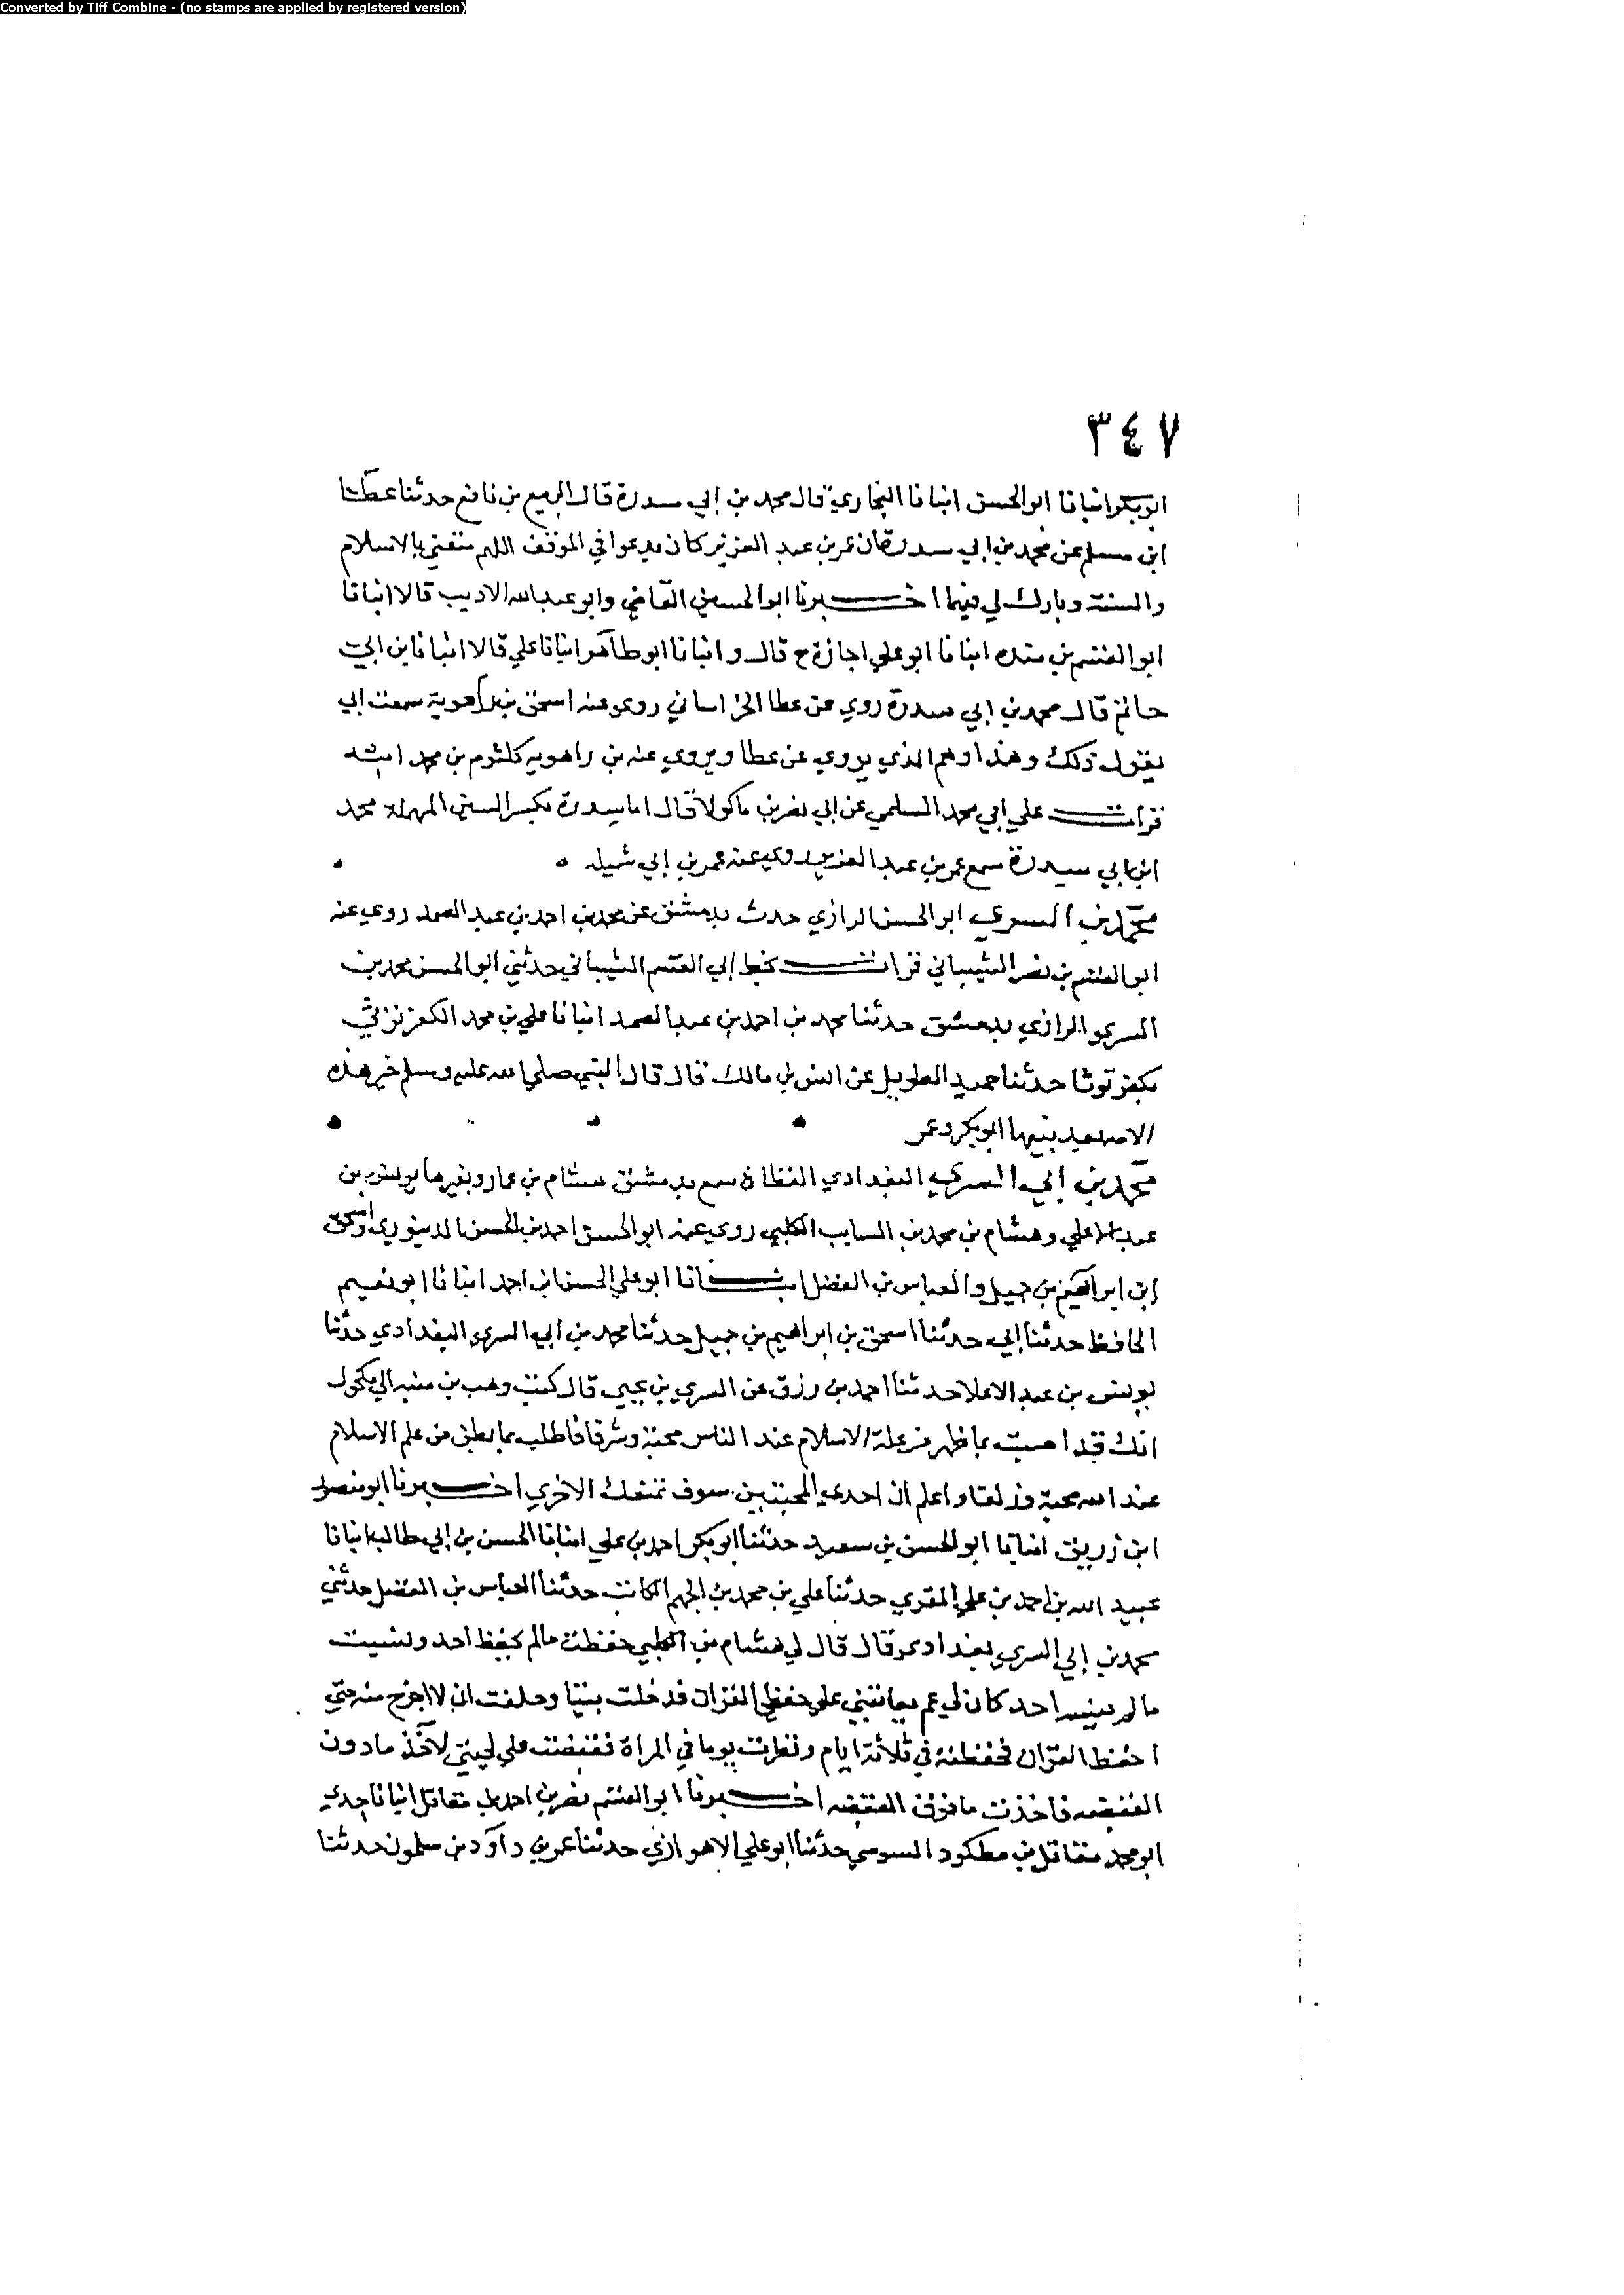 Converted by Tiff Combine - (no stamps are applied by registered version)
٣٤٧
ابو بكر انبانا ابو الحسن انبانا البخاري قال محمد بن ابي سدرة قال الربيع بن نافع حدثنا عطا
ابن مسلم عن محمد بن ابي سدرة قال ان عمر بن عبد العزيز كان يدعوا في الموقف اللهم متعني بالاسلام
والسنة وبارك لي فيهما اخبرنا ابو الحسين القاضي وابو عبد الله الاديب قالا انبانا
ابو القسم بن منده انبانا ابو علي اجازة ح قال وانبانا ابو طاهر انبانا علي قالا انبانا ابن ابي
حاتم قال محمد بن ابي سدرة روي عن عطا الخراساني روي عنه اسحق بن راهوية سمعت ابي
يقول ذلك وهذا وهم الذي يروي عن عطا ويروي عنه بن راهويه كلثوم بن محمد
قرات علي ابي محمد السلمي عن ابي نصر بن ماكولا قال اما سدرة بكسر السين المهملة محمد
ابن ابي سيدرة سمع عمر بن عبد العزيز روي عنه عمر بن ابي شميله
محمد بن السري ابو الحسن الرازي حدث بدمشق عن محمد بن احمد بن عبد الصمد روي عنه
ابو القسم بن نصر الشيباني قرات بخط ابي القسم الشيباني حدثني ابو الحسن محمد بن
السري الرازي بدمشق حدثنا محمد بن احمد بن عبد الصمد انبانا علي بن محمد الكفرتوثي
بكفرتوثا حدثنا حميد الطويل عن انس بن مالك قال قال النبي صلي الله عليه وسلم خير هذه
الامة بعد نبيها ابو بكر وعمر
محمد بن ابي السري البغدادي القطان سمع بدمشق هشام بن عمار وبغيرها يونس بن
عبد الاعلي وهشام بن محمد بن السايب الكلبي روي عنه ابو الحسن احمد بن الحسن الدينوري واسحق
ابن ابراهيم بن جميل والعباس بن الفضل انبانا ابو علي الحسن ابن احمد انبانا ابو نعيم
الحافظ حدثنا ابي حدثنا اسحق بن ابراهيم بن جميل حدثنا محمد بن ابي السري البغدادي حدثنا
يونس بن عبد الاعلا حدثنا احمد بن رزق عن السري بن يحيي قال كتب وهب بن منبه الي مكحول
انك قد اصبت بما ظهر من علم الاسلام عند الناس محبة وشرفا فاطلب بما بطن من علم الاسلام
عند الله محبة وزلفا واعلم ان احدي المحبتين سوف تمنعك الاخري اخبرنا ابو منصور
ابن زريق انبانا ابو الحسن بن سعيد حدثنا ابو بكر احمد بن علي انبانا الحسن بن ابي طالب انبانا
عبيد الله بن احمد بن علي المقري حدثنا علي بن محمد بن الجهم الكاتب حدثنا العباس بن الفضل حدثني
محمد بن ابي السري بغدادي قال قال لي هشام بن الكلبي حفظت مالم يحفظ احد ونسيت
مالم ينسه احد كان لي عم يعاتبني علي حفظ القران فدخلت بيتا وحلفت ان لا اخرج منه حتي
احفظ القران فحفظته في ثلاثة ايام ونظرت يوما في المراة فقبضت علي لحيتي لآخذ مادون
القبضه فاخذت مافوق القبضه اخبرنا ابو القسم نصر بن احمد بن مقاتل انبانا جدي
ابو محمد مقاتل بن مطكود السوسي حدثنا ابو علي الاهوازي حدثنا عمر بن داود بن سلمون حدثنا